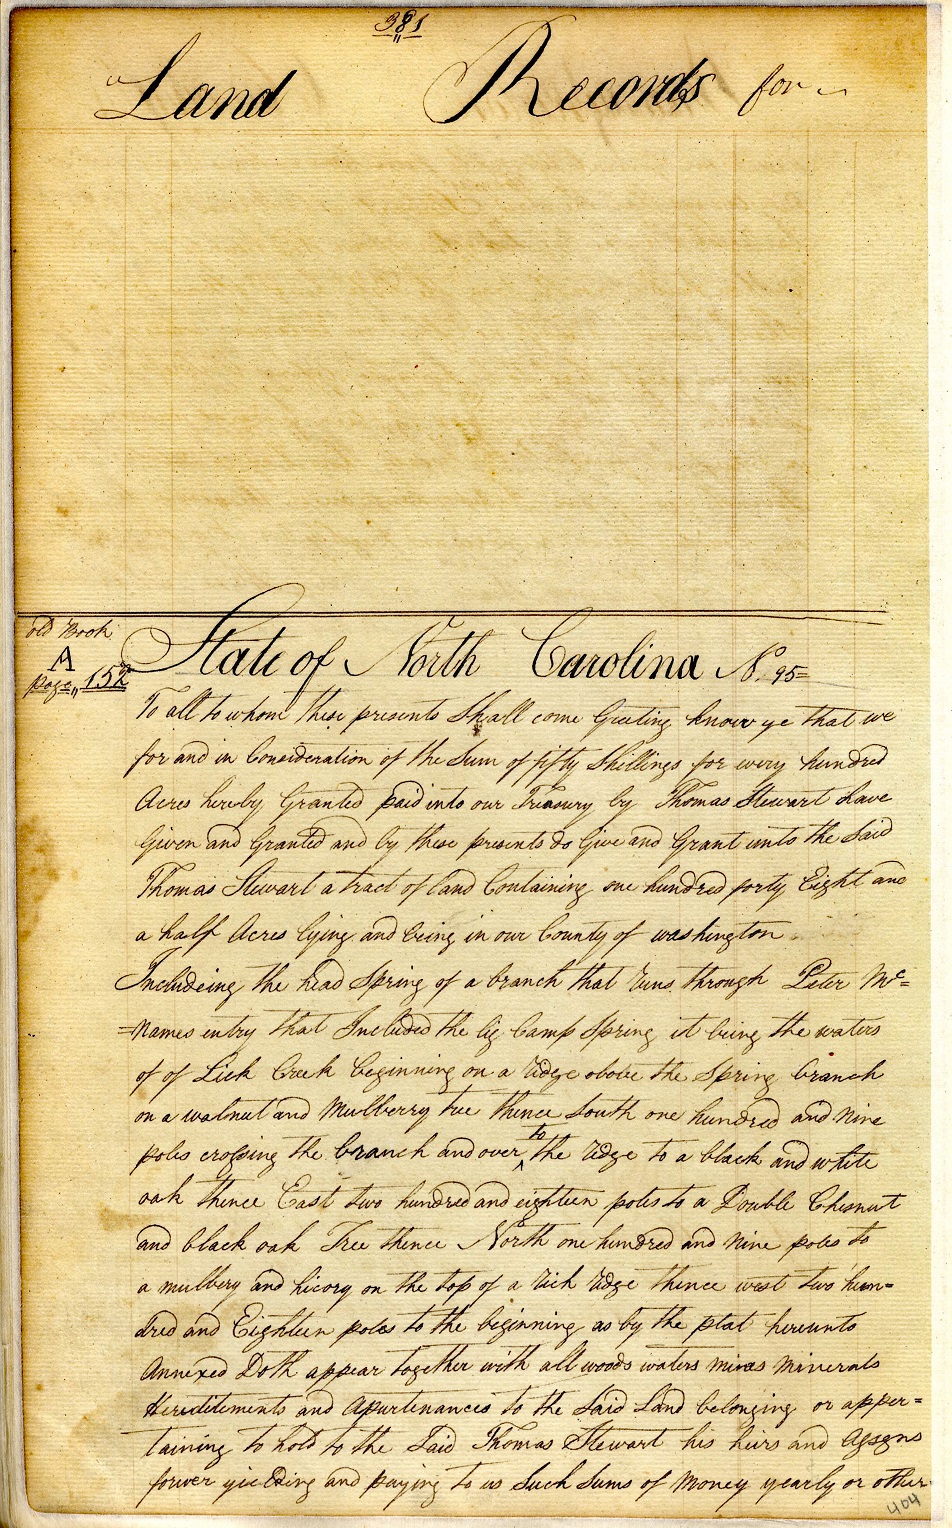 381
Land Records for
old Book
A
page,, 152
State of North Carolina No. 95=
To all to whom these presents Shall come Greeting know ye that we
for and in Consideration of the Sum of fifty Shillings for every hundred
Acres hereby Granted paid into our Treasury by Thomas Stewart have
Given and Granted and by these presents do Give and Grant unto the Said
Thomas Stewart a tract of land Containing one hundred forty Eight and
a half Acres lying and being in our County of washington
Includeing the head Spring of a branch that runs through Peter Mc=
=Names entry that Included the big Camp Spring it being the waters
of of Lick Creek beginning on a ridge above the Spring branch
on a walnut and Mulberry tree thence South one hundred and Nine
poles crossing the branch and over to the ridge to a black and white
oak thence East two hundred and eighteen poles to a Double Chesnut
and black oak Tree thence North one hundred and Nine poles to
a mulbery and hicory on the top of a rich ridge thence west two hun=
dred and Eighteen poles to the beginning as by the plat hereunto
Annexed Doth appear together with all woods waters mines Minerals
Hereditements and Apurtenances to the Said Land belonging or apper=
taining to hold to the Said Thomas Stewart his heirs and Assigns
forever yielding and paying to us Such Sums of Money yearly or other
404